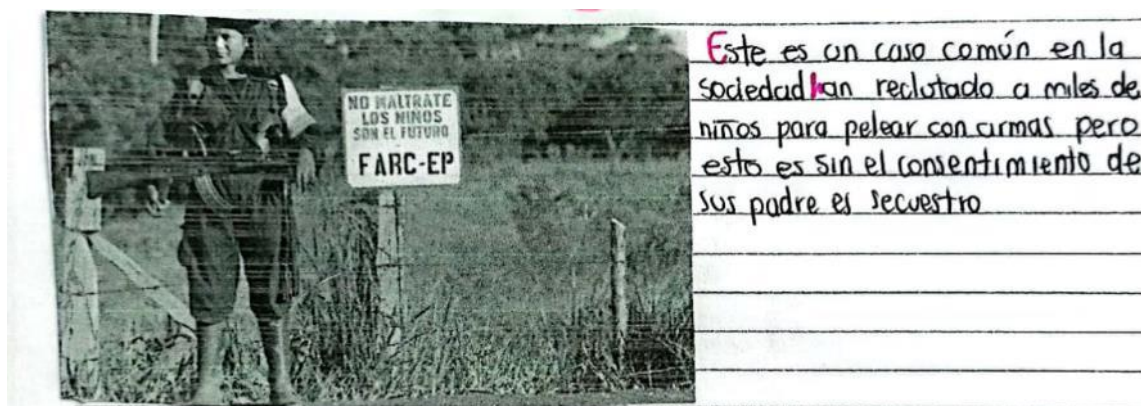 NO MALTRATE
LOS NIÑOS
SON EL FUTURO
FARC-EP
Este es un caso común en la
sociedad han reclutado a miles de
niños para pelear con armas pero
esto es sin el consentimiento de
sus padre es secuestro